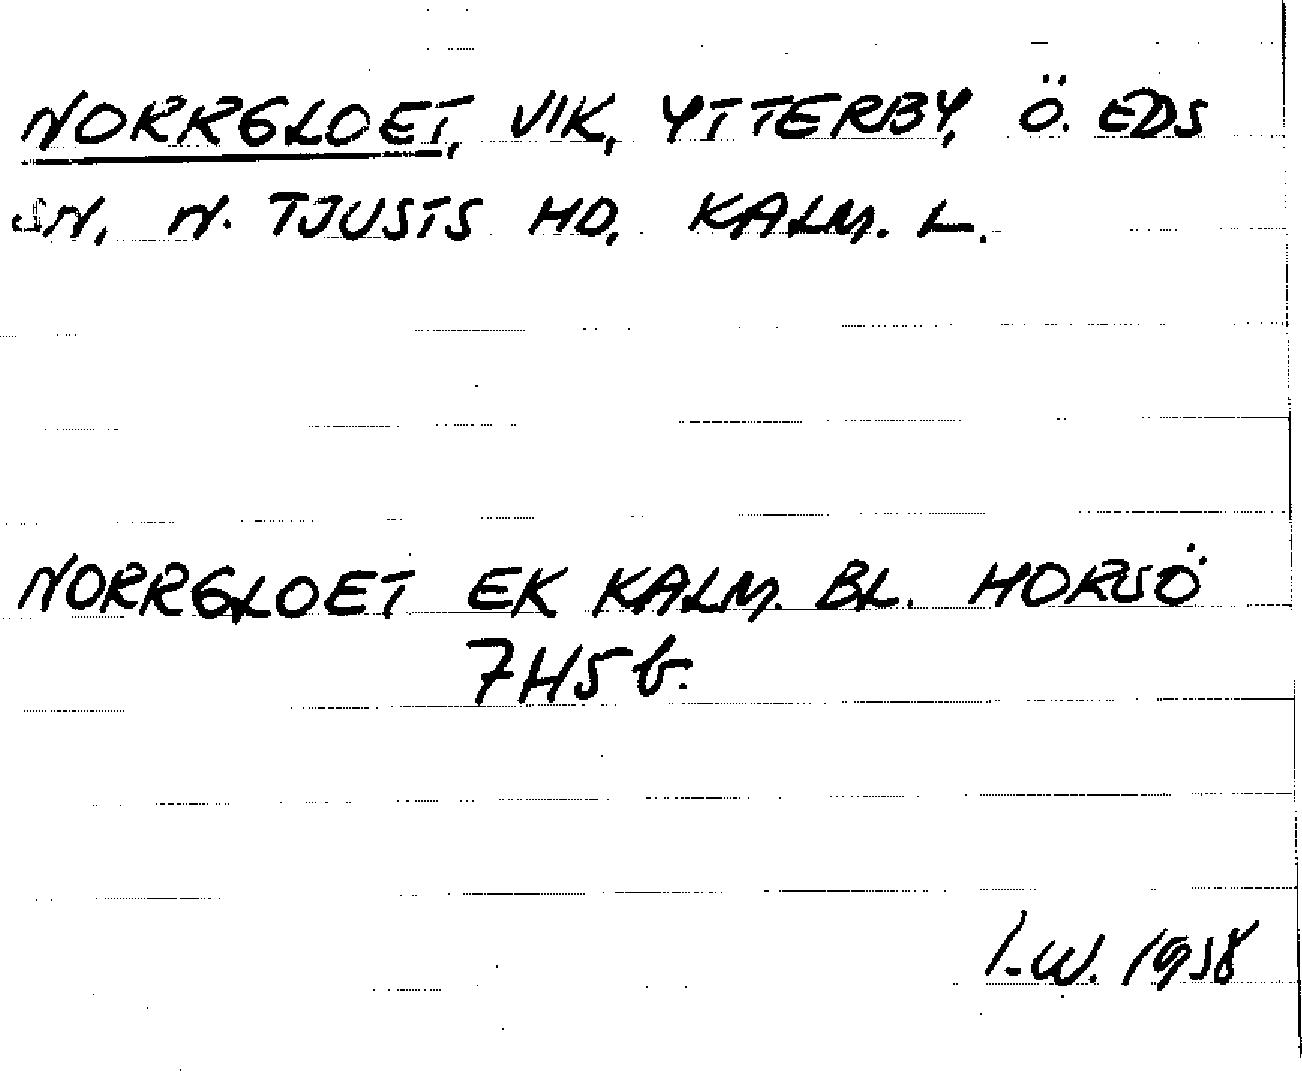 NORRGLOET, VIK, YTTERBY, Ö. EDS
SN, N. TJUSTS HD, KALM. L.
NORRGLOET EK KALM. BL. HORSÖ
7H5b.
I.W. 1958